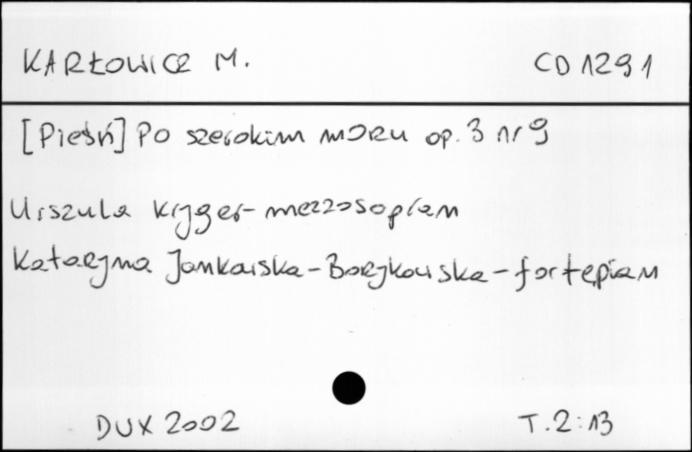 KARŁOWICZ M. CD 1291
[Pieśń] Po szerokim morzu op. 3 nr 9
Urszula Kryger - mezzosopran
Katarzyna Jankowska-Borzykowska - fortepian
DUX 2002 T. 2:13